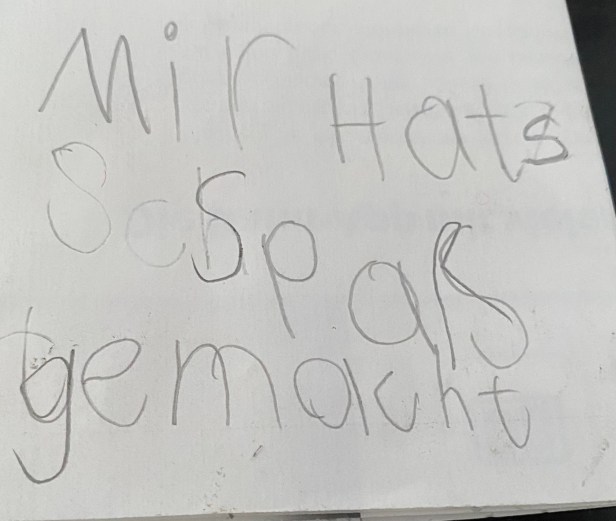 Mir Hats
Spaß
gemacht